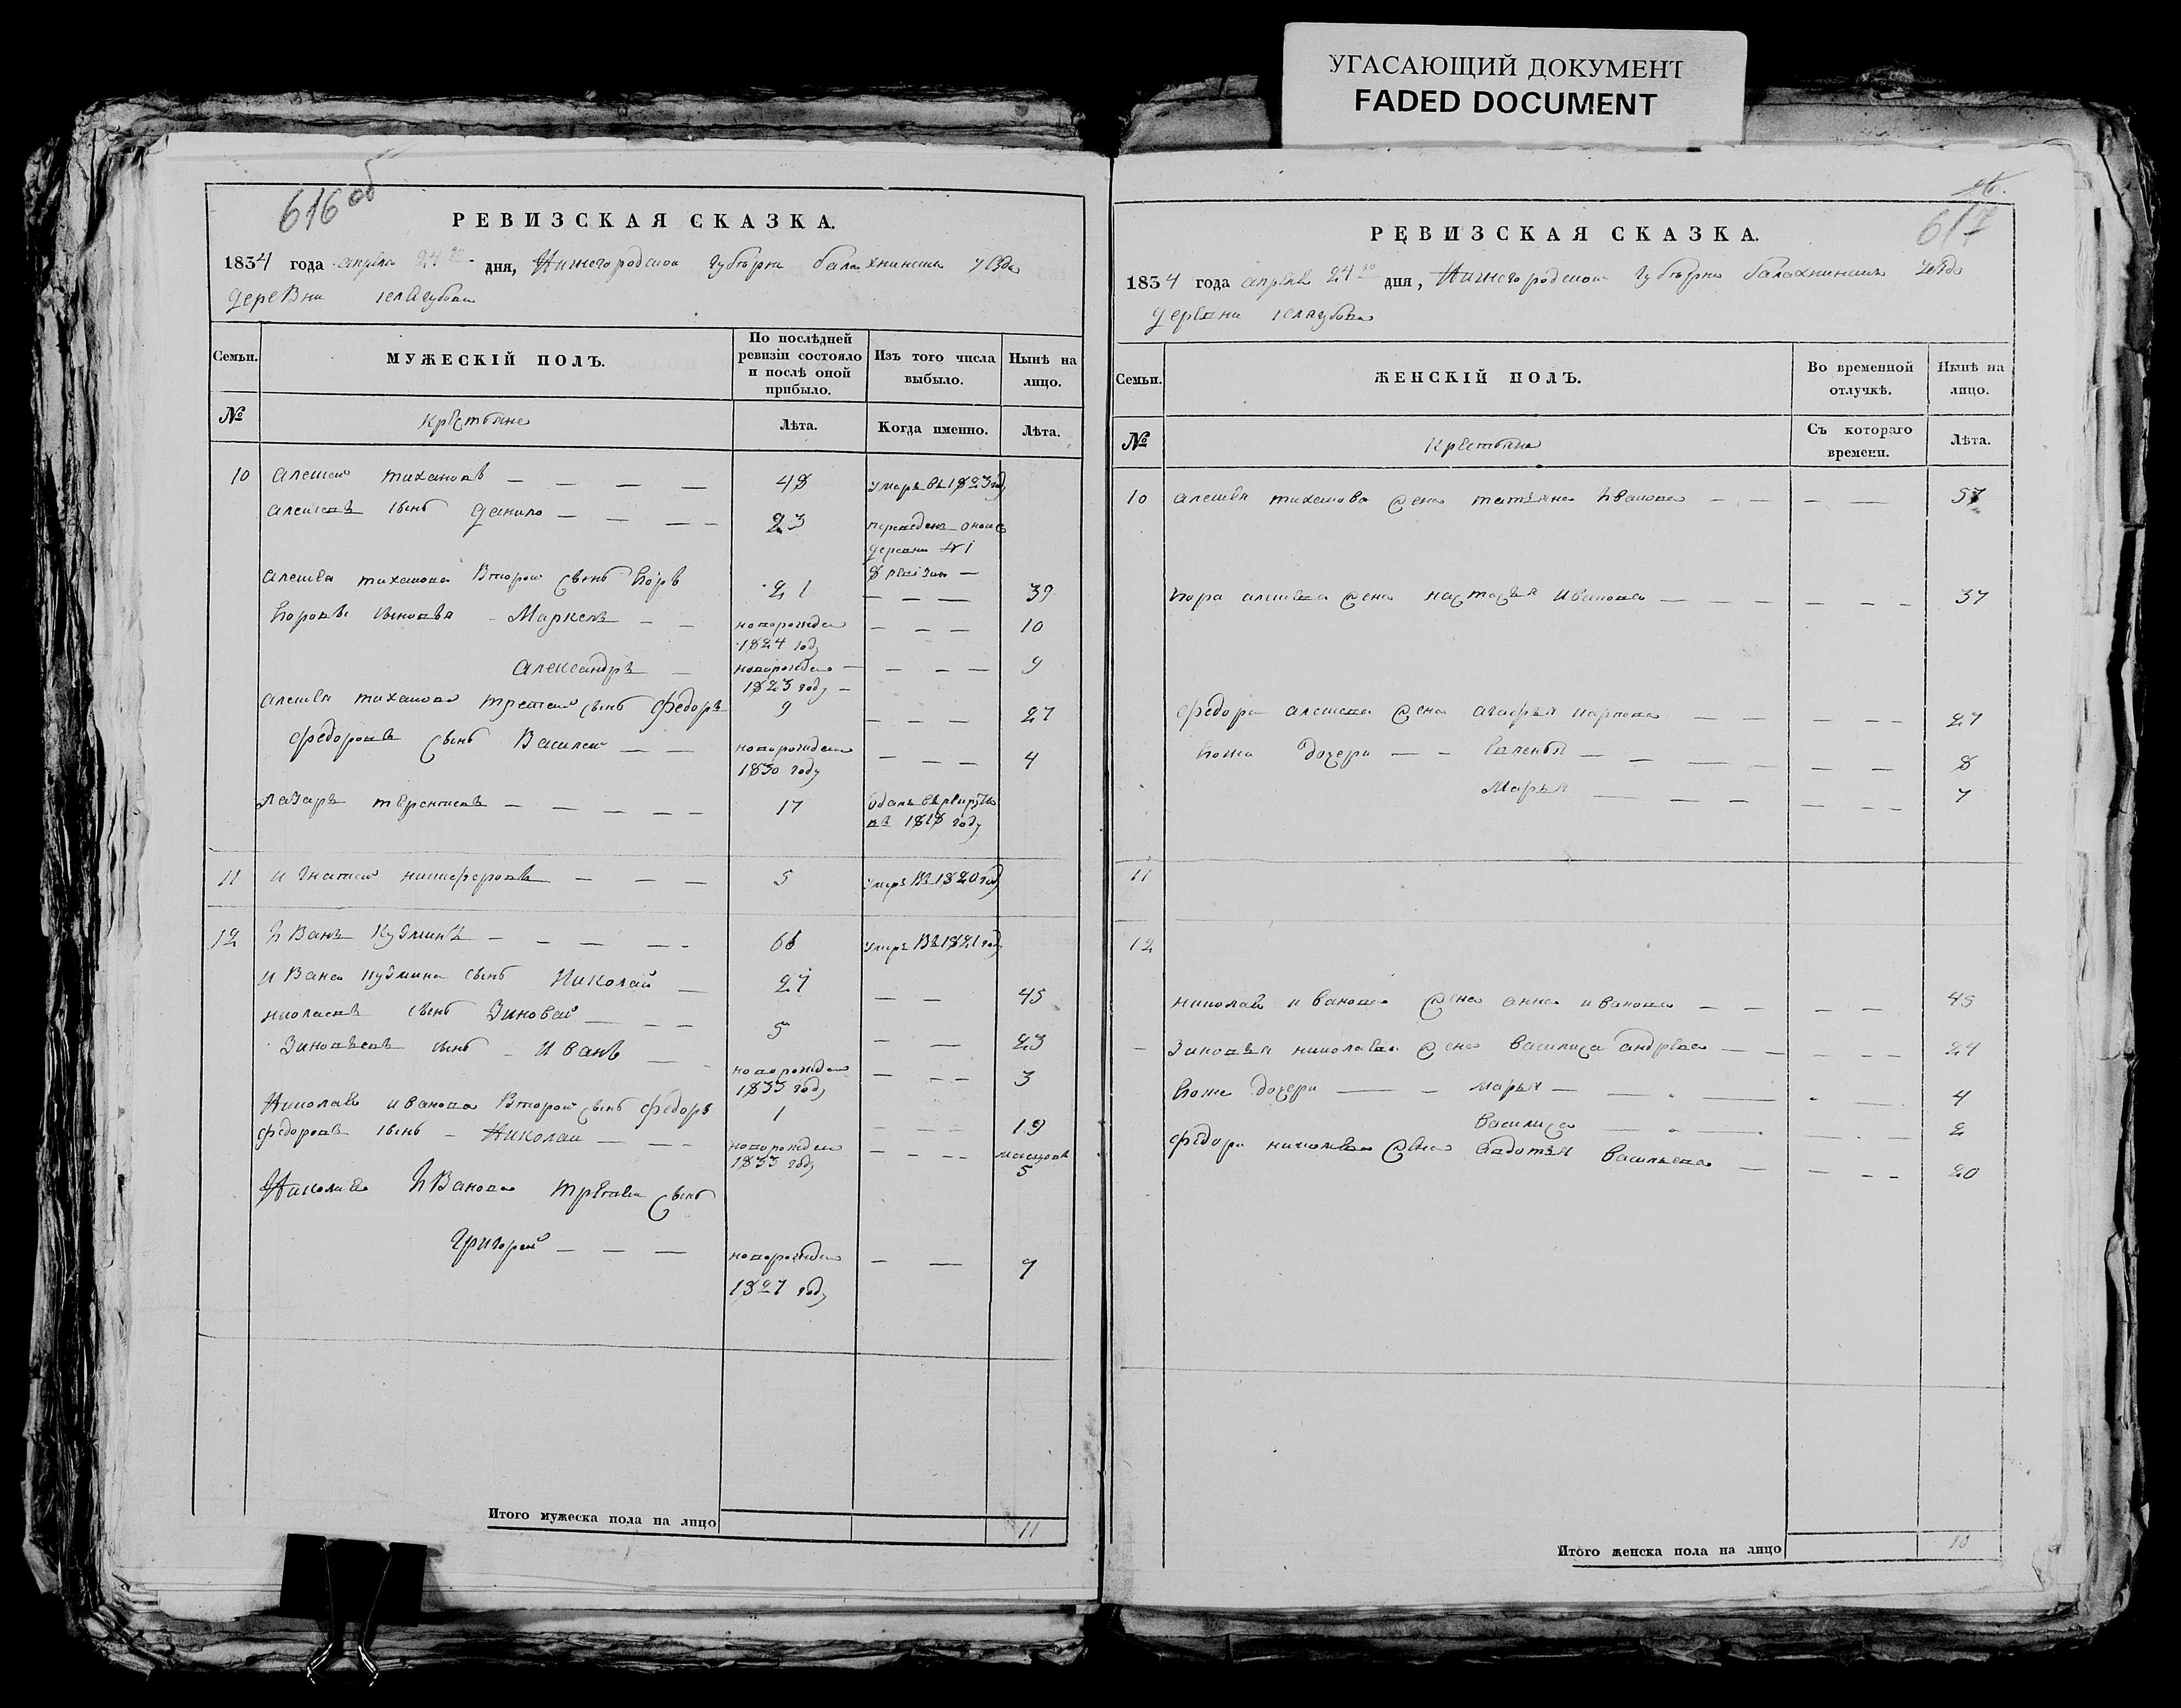 УГАСАЮЩИЙ ДОКУМЕНТ
FADED DOCUMENT
616 об
РЕВИЗСКАЯ СКАЗКА.
1834 года апреля 24 го дня, Нижегородской губѣрни балахнинска уезда
деревни
Семьи.
МУЖЕСКІЙ ПОЛЪ.
По послѣдней ревизіи состояло и послѣ оной прибыло.
Изъ того числа выбыло.
Нынѣ на лицо.
№
крестьяне
Лѣта.
Когда именно.
Лѣта.
10 алексеи тиханов — — — — 48 умеръ въ 1823 год
алексеевъ сынъ данило — — — 23 переведенъ
деревни № 1
8 ревизии —
алексея тиханова второи сынъ Егоръ 21 — — — 39
Егоровы сыновья Маркелъ — — новорожден — — — 10
1824 год
Александръ — новорожден — — — 9
1825 году —
алексея тиханова третеи сынъ федоръ 9 — — — 27
федоровъ сынъ Василеи — — новорожден — — — 4
1830 году
лазарь терентиевъ — — — — — 17 одан в рекруты
въ 1818 году
11 игнатеи никифоровъ — — — 5 умеръ въ 1820 год
12 Иванъ кузминъ — — — — 66 умеръ въ 1821 год
Ивана кузмина сынъ Николай — 27 — — 45
николаевъ сынъ Зиновей — — — 5 — — 23
Зиновьевъ сынъ Иванъ — — новорожден — — — 3
1833 год
Николая иванова второи сынъ федоръ 1 — — — 19
федоровъ сынъ — Николаи — — — новорожден — — — месецов
1833 год 5
Николая Иванова третеи сынъ
Григореи — — — новорожден — — 7
1827 год
Итого мужеска пола на лицо 11
617
РЕВИЗСКАЯ СКАЗКА.
1834 года апреля 24 го дня, Нижегородской губѣрни балахнинска уезда
деревни
Семьи.
ЖЕНСКІЙ ПОЛЪ.
Во временной отлучкѣ.
Нынѣ на лицо.
№
крестьяне
Съ котораго времени.
Лѣта.
10 алексея тиханова жена татьяна Иванова — — — — 57
Егора алексеева жена настасья Иванова — — — — — — 37
федора алексеева жена агафья карпова — — — — — 27
Евоже дочери — — — — — — — — 8
Марья — — — — — — — 7
11
12
николая иванова жена анна иванова — — — — — 45
Зиновья николаева жена василиса андреева — — — — — 24
Евоже дочери — — марья — — — — — — 4
Василиса — — — — — 2
федора николаева жена авдотья Васильева — — — — 20
Итого женска пола на лицо 10